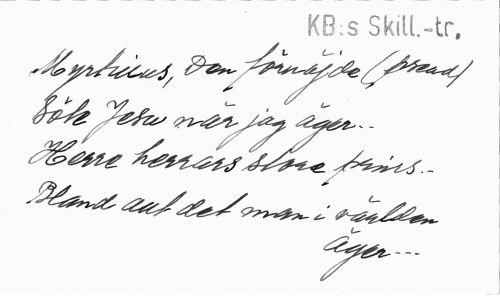 KB:s Skill.-tr.
Myrtillus, Den förnöjde (pseud)
Söte Jesu när jag äger..
Herre herrars store prins..
Bland alt det man i världen
äger...